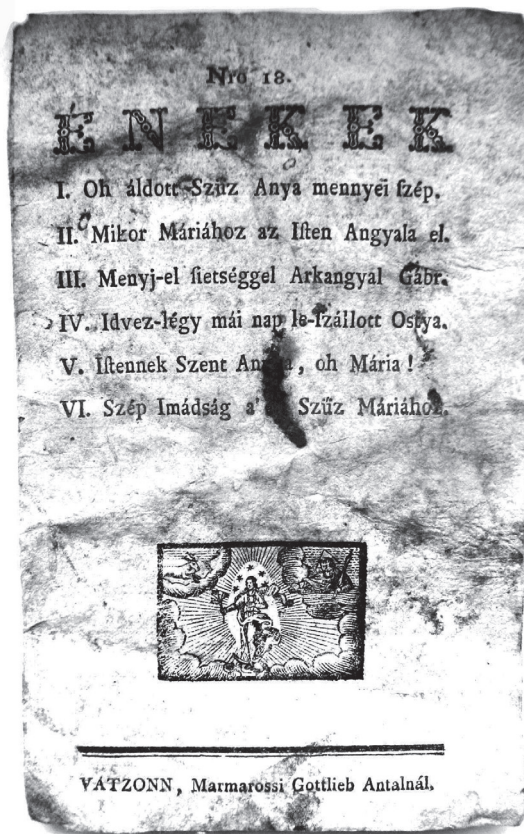 Nro 18.
ÉNEKEK
I. Oh áldott Szűz Anya mennyei ſzép.
II. Mikor Máriához az Iſten Angyala el.
III. Menyj-el ſietséggel Arkangyal Gábr.
IV. Idvez-légy mái nap le-ſzállott Ostya.
V. Iſtennek Szent , oh Mária !
VI. Szép Imádság a' Szűz Máriához.
VATZONN, Marmarossi Gottlieb Antalnál.